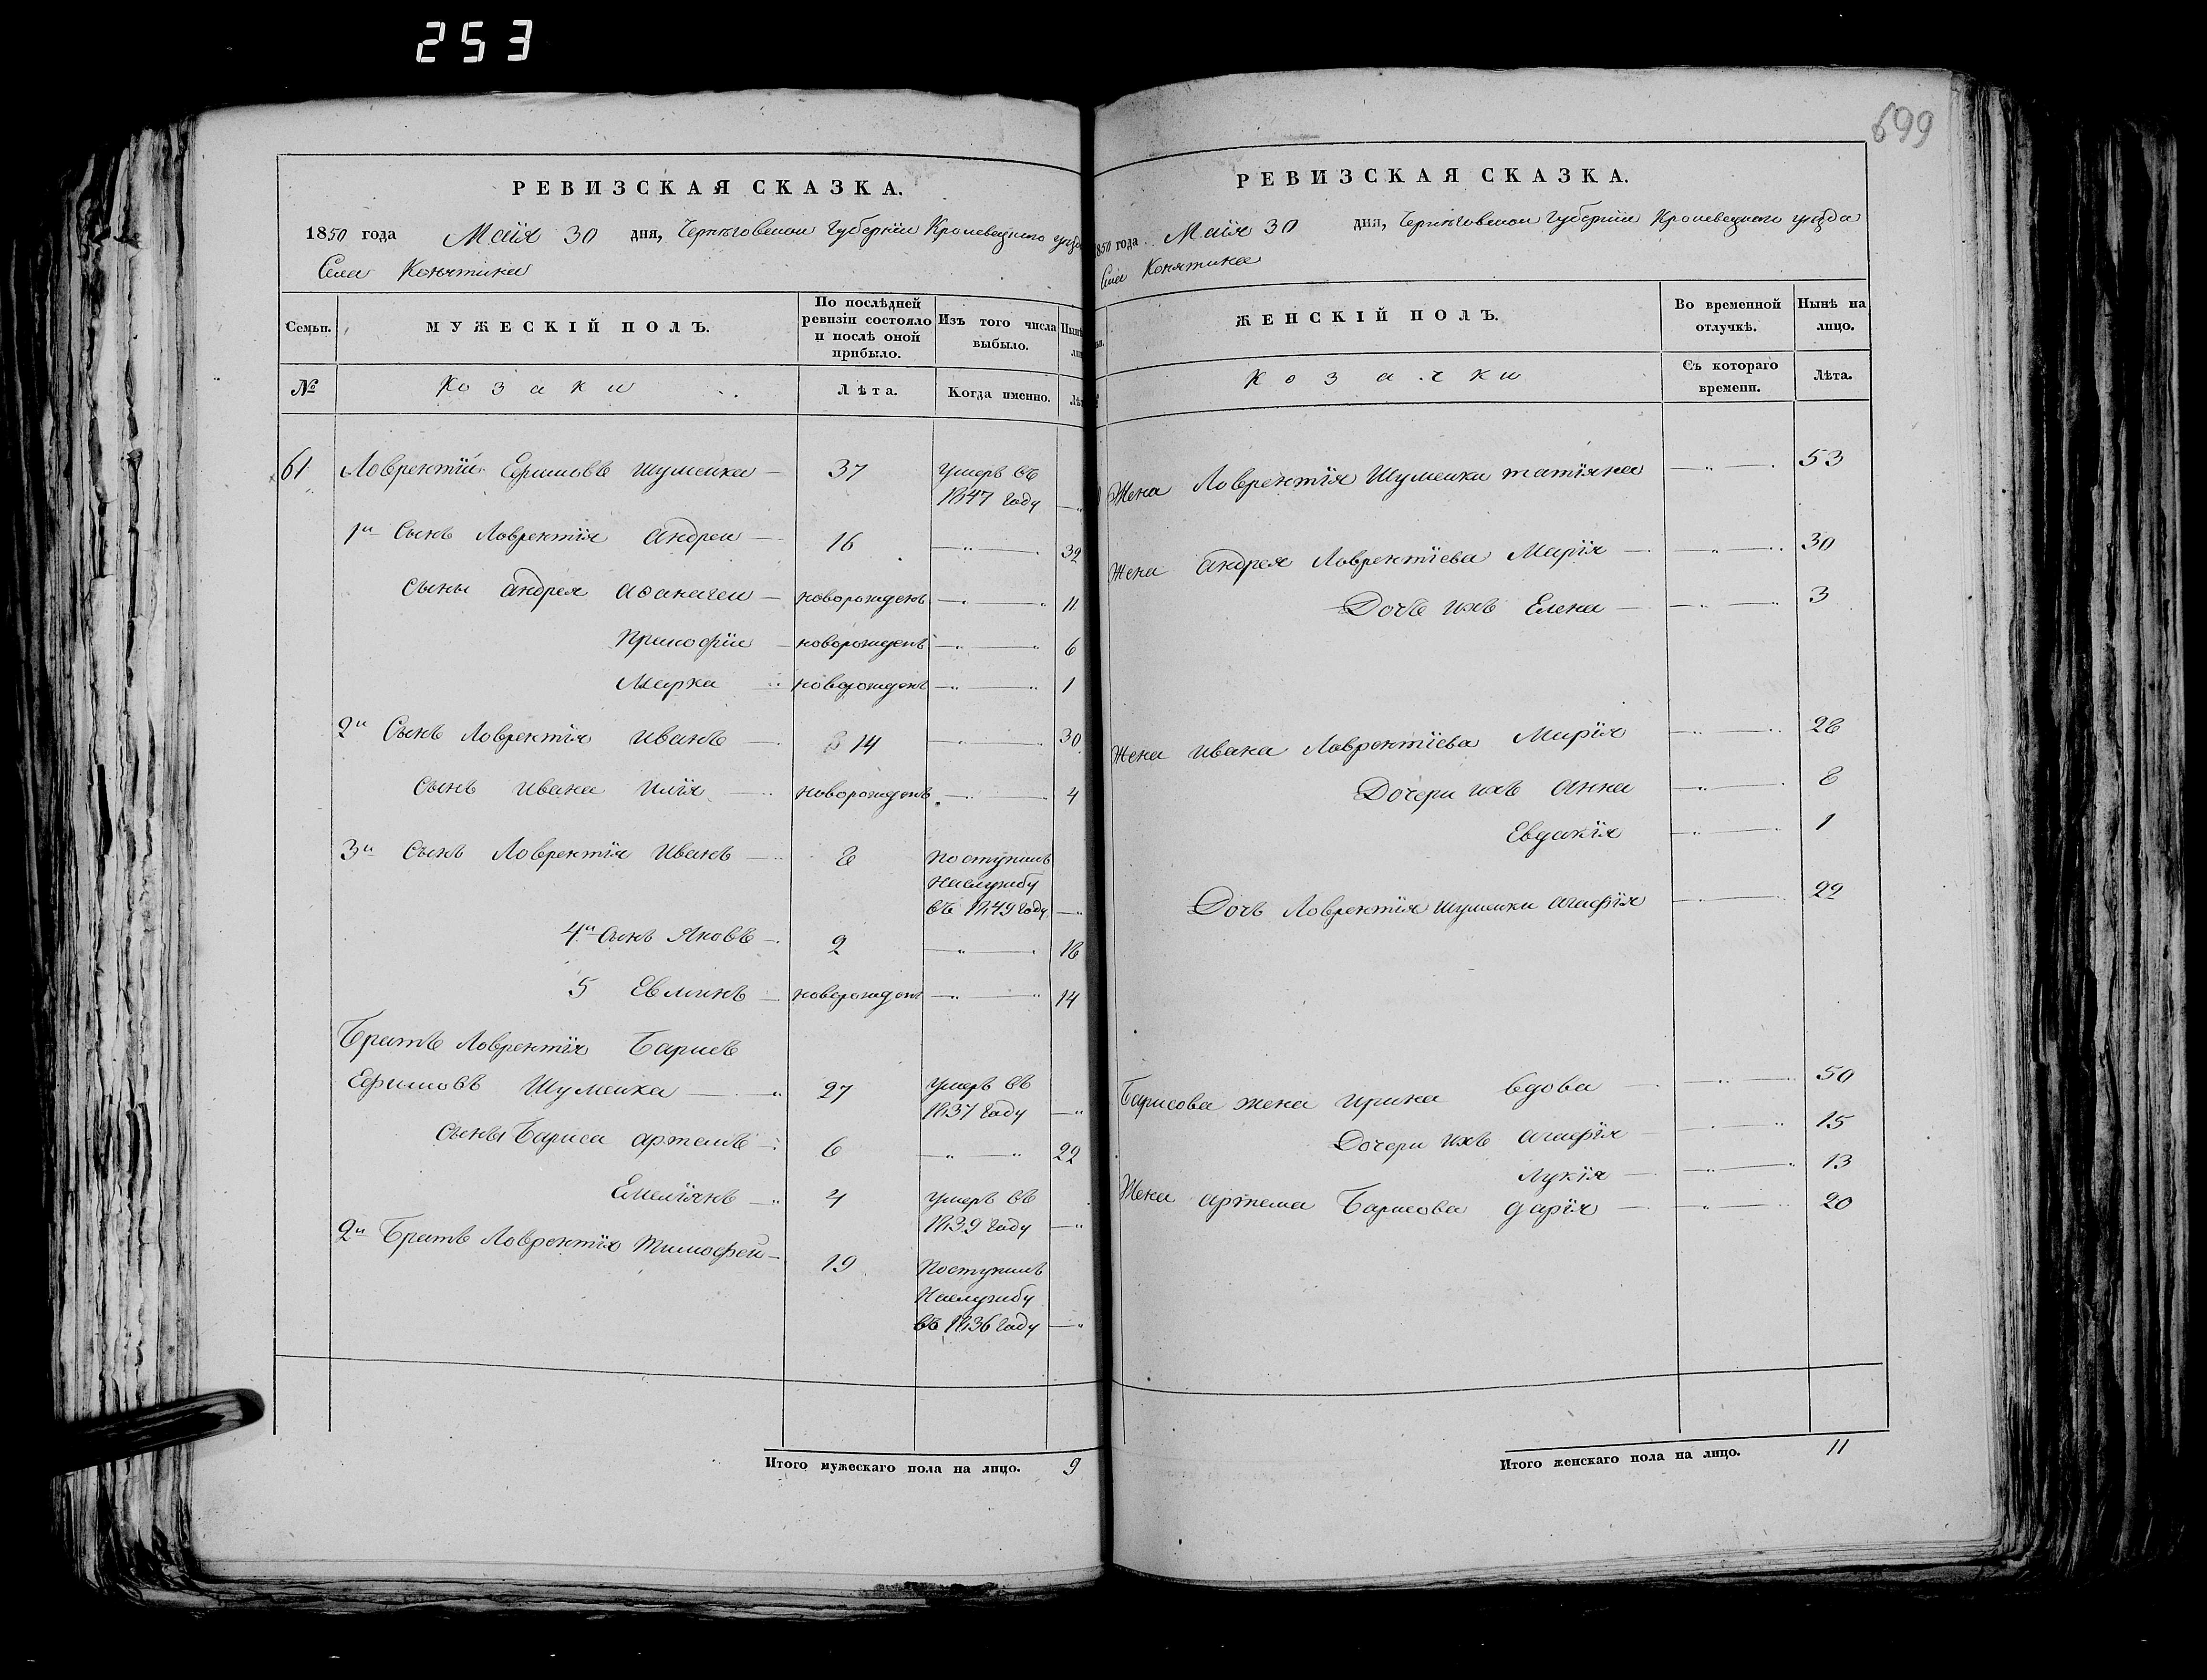 253
699
РЕВИЗСКАЯ СКАЗКА.
1850 года Маія 30 дня, Черниговской Губерніи Кролевецкого уезда
Села Конятина
Семьи. МУЖЕСКІЙ ПОЛЪ. По послѣдней ревизіи состояло и послѣ оной прибыло. Изъ того числа выбыло.
№ Козаки Лѣта. Когда именно.
61 Ловрентій Ефимовъ Шумейка 37 умеръ въ
1847 году
1й Сынъ Ловрентія андреи 16 32
Сыны андрея аѳанасеи новорожденъ 11
Пракофіи новорожденъ 6
Марка новорожденъ 1
2й Сынъ Ловрентія иванъ 14 30
Сынъ ивана илія новорожденъ 4
3й Сынъ Ловрентія иванъ 8 поступилъ
наслужбу
въ 1849 году
4й Сынъ Яковъ 2 18
5 новорожденъ 14
Братъ Ловрентія Барисъ
Ефимовъ Шумейка 27 умеръ въ
1837 году
Сыны Бариса артемъ 6 22
Емеліянъ 4 умеръ въ
1839 году
2й Братъ Ловрентія Тимофей 19 Поступилъ
Наслужбу
въ 1836 году
Итого мужескаго пола на лицо. 9
РЕВИЗСКАЯ СКАЗКА.
1850 года Маія 30 дня, Черниговской Губерніи Кролевецкаго уезда
Села Конятина
ЖЕНСКІЙ ПОЛЪ. Во временной отлучкѣ. Нынѣ на лицо.
Козачки Съ котораго времени. Лѣта.
Жена Ловрентія Шумейки татіяна 53
Жена андрея Ловрентіева Марія 30
Дочь ихъ Елена 3
Жена ивана Ловрентіева Марія 28
Дочери ихъ анна 8
Евдакія 1
Дочь Ловрентія Шумейки агафія 22
Барисова жена ирина вдова 50
Дочери ихъ агафія 15
Лукія 13
Жена артема Барисова дарія 20
Итого женскаго пола на лицо. 11